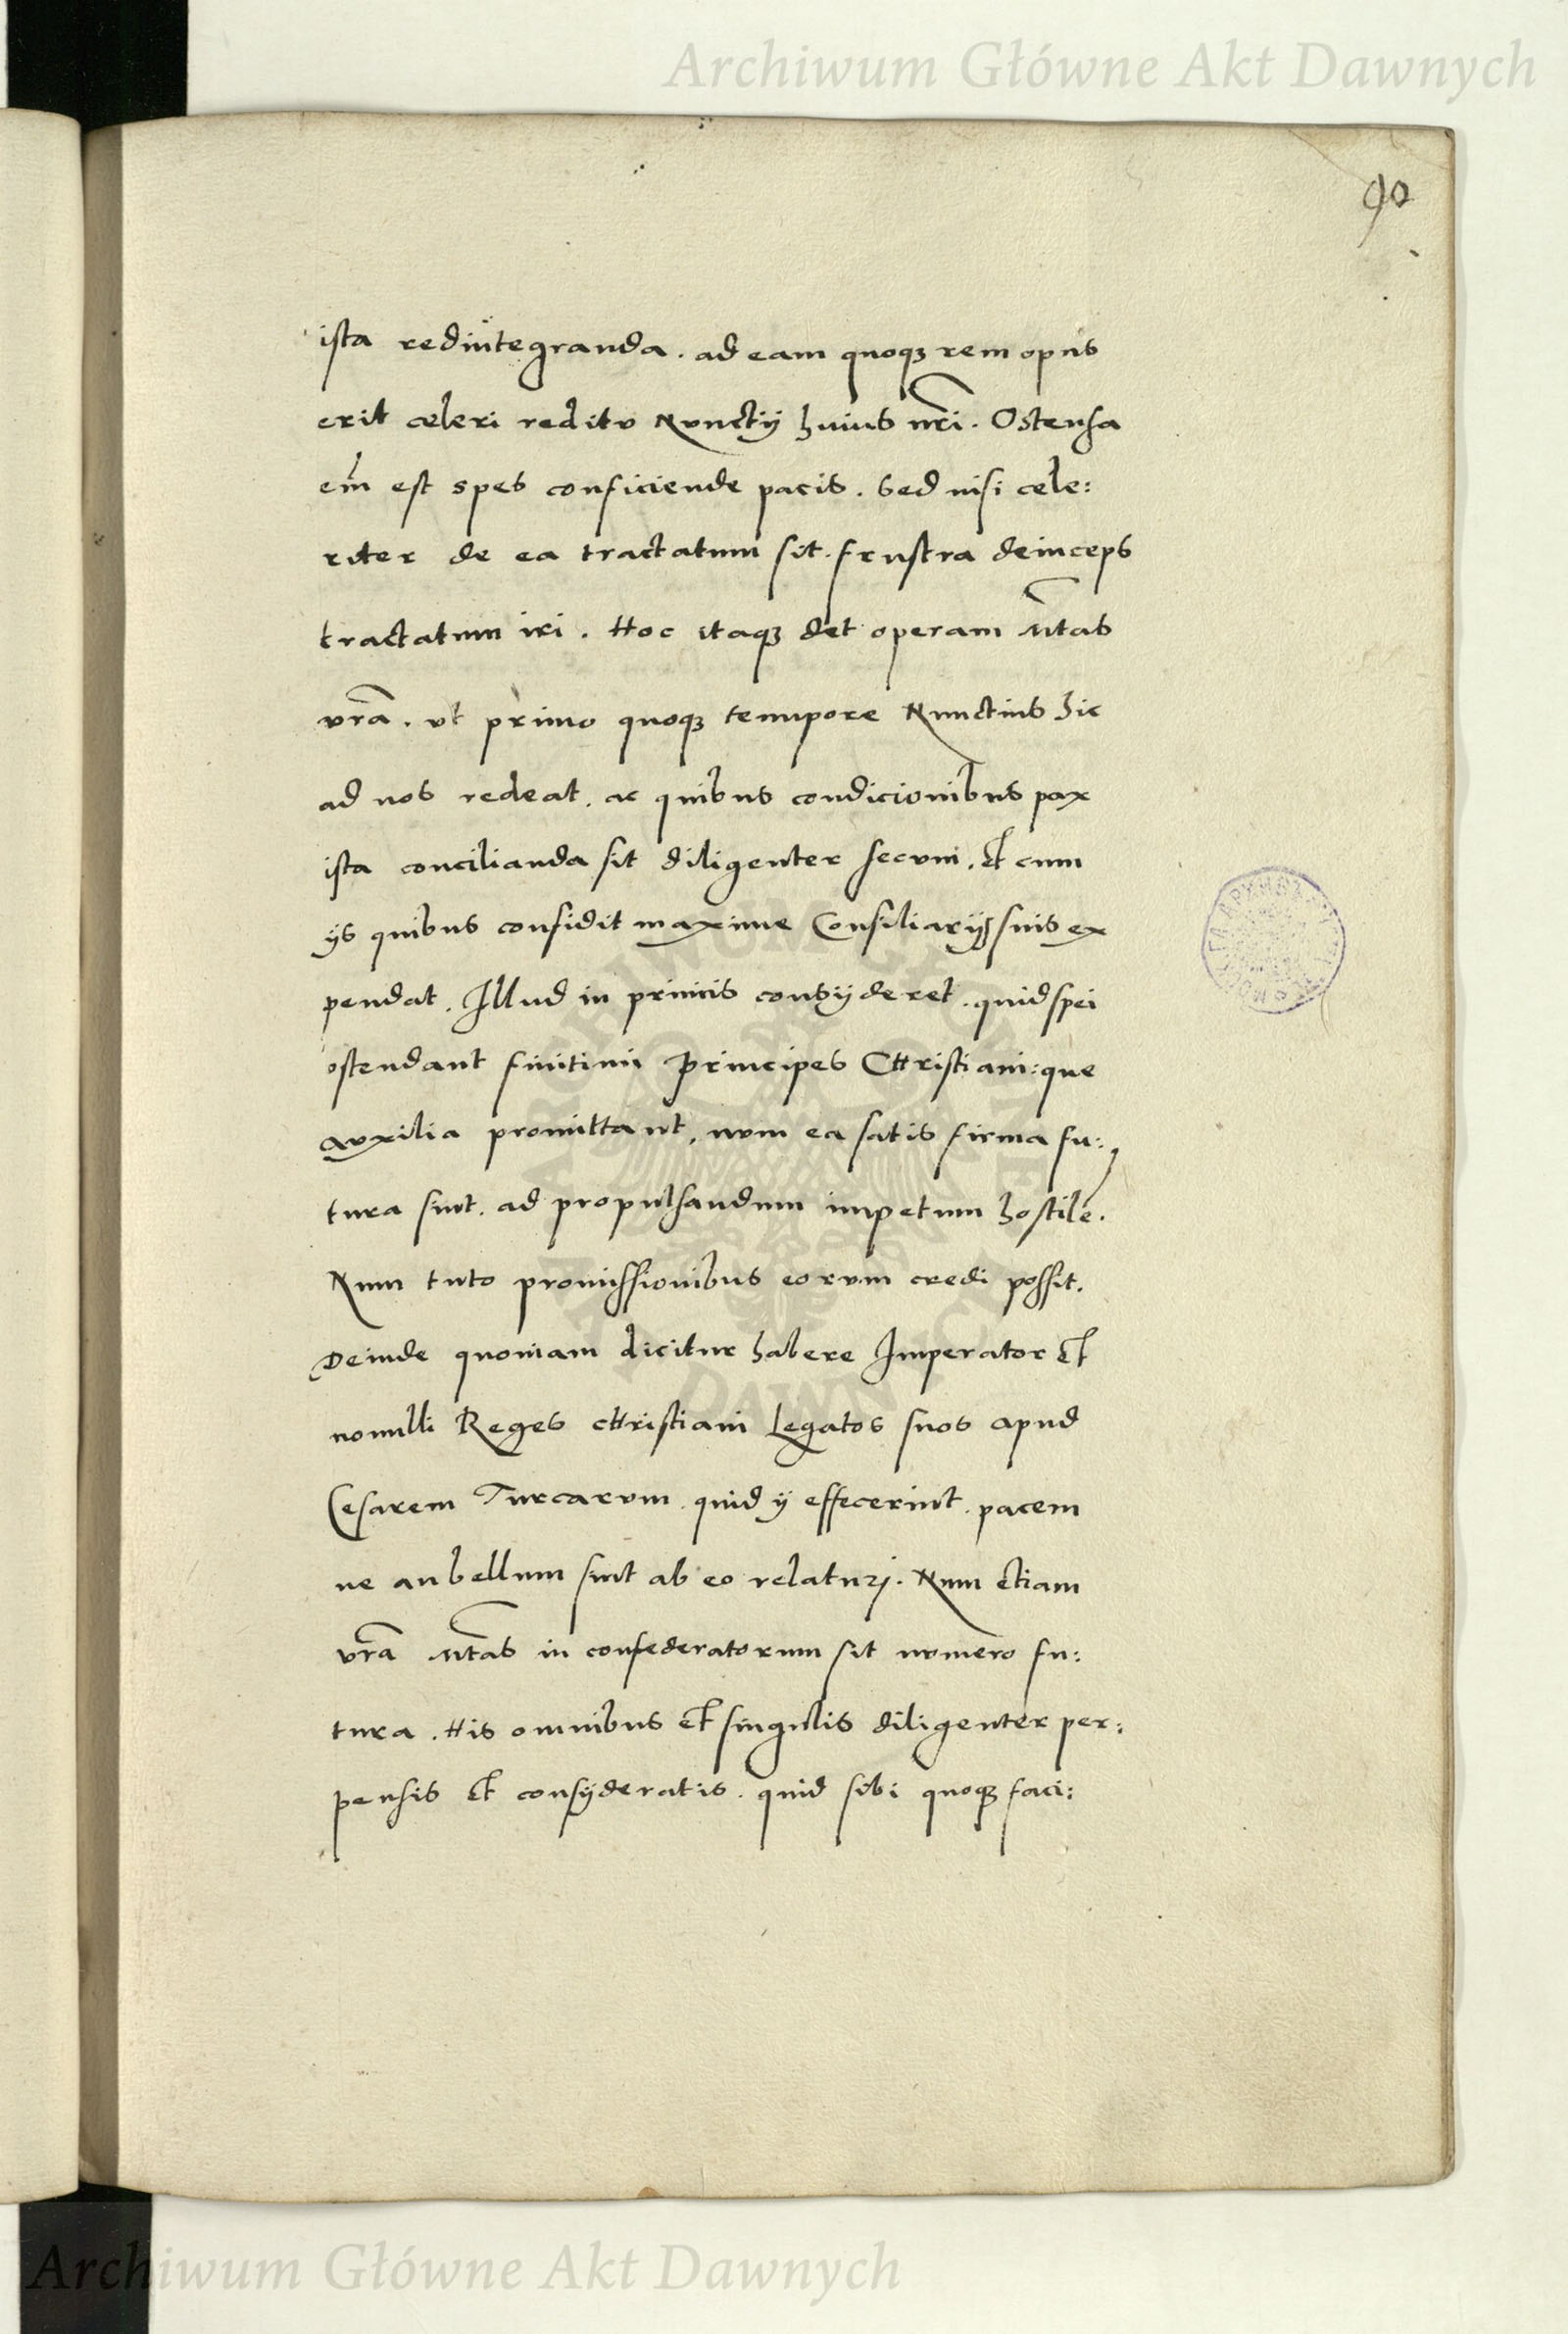 Archiwum Główne Akt Dawnych
90
ista redintegranda. ad eam quoqꝫ rem opus
erit celeri reditu Nunctij huius nr̃i. Ostensa
em̃ est spes conficiende pacis. Sed nisi cele:
riter de ea tractatum sit. frustra deinceps
tractatum iri. Hoc itaqꝫ det operam Mtas
vr̃a. vt primo quoqꝫ tempore Nunctius hic
ad nos redeat. ac quibus condicionibus pax
ista concilianda sit diligenter secum. et cum
ijs quibus confidit maxime Consiliarijs suis ex
pendat. Illud in primis consyderet. quid spei
ostendant finitimi Principes Christiani: que
auxilia promittant, num ea satis firma fu:
tura sint. ad propulsandum impetum hostilẽ.
Num tuto promissionibus eorum credi possit.
Deinde quoniam dicitur habere Imperator et
nonulli Reges christiani Legatos suos apud
Cesarem Turcarum. quid ij effecerint. pacem
ne an bellum sint ab eo relaturj. Num etiam
vr̃a Mtas in confederatorum sit numero fu:
tura. His omnibus et singulis diligenter per:
pensis et consyderatis. quid sibi quoqꝫ faci:
Archiwum Główne Akt Dawnych